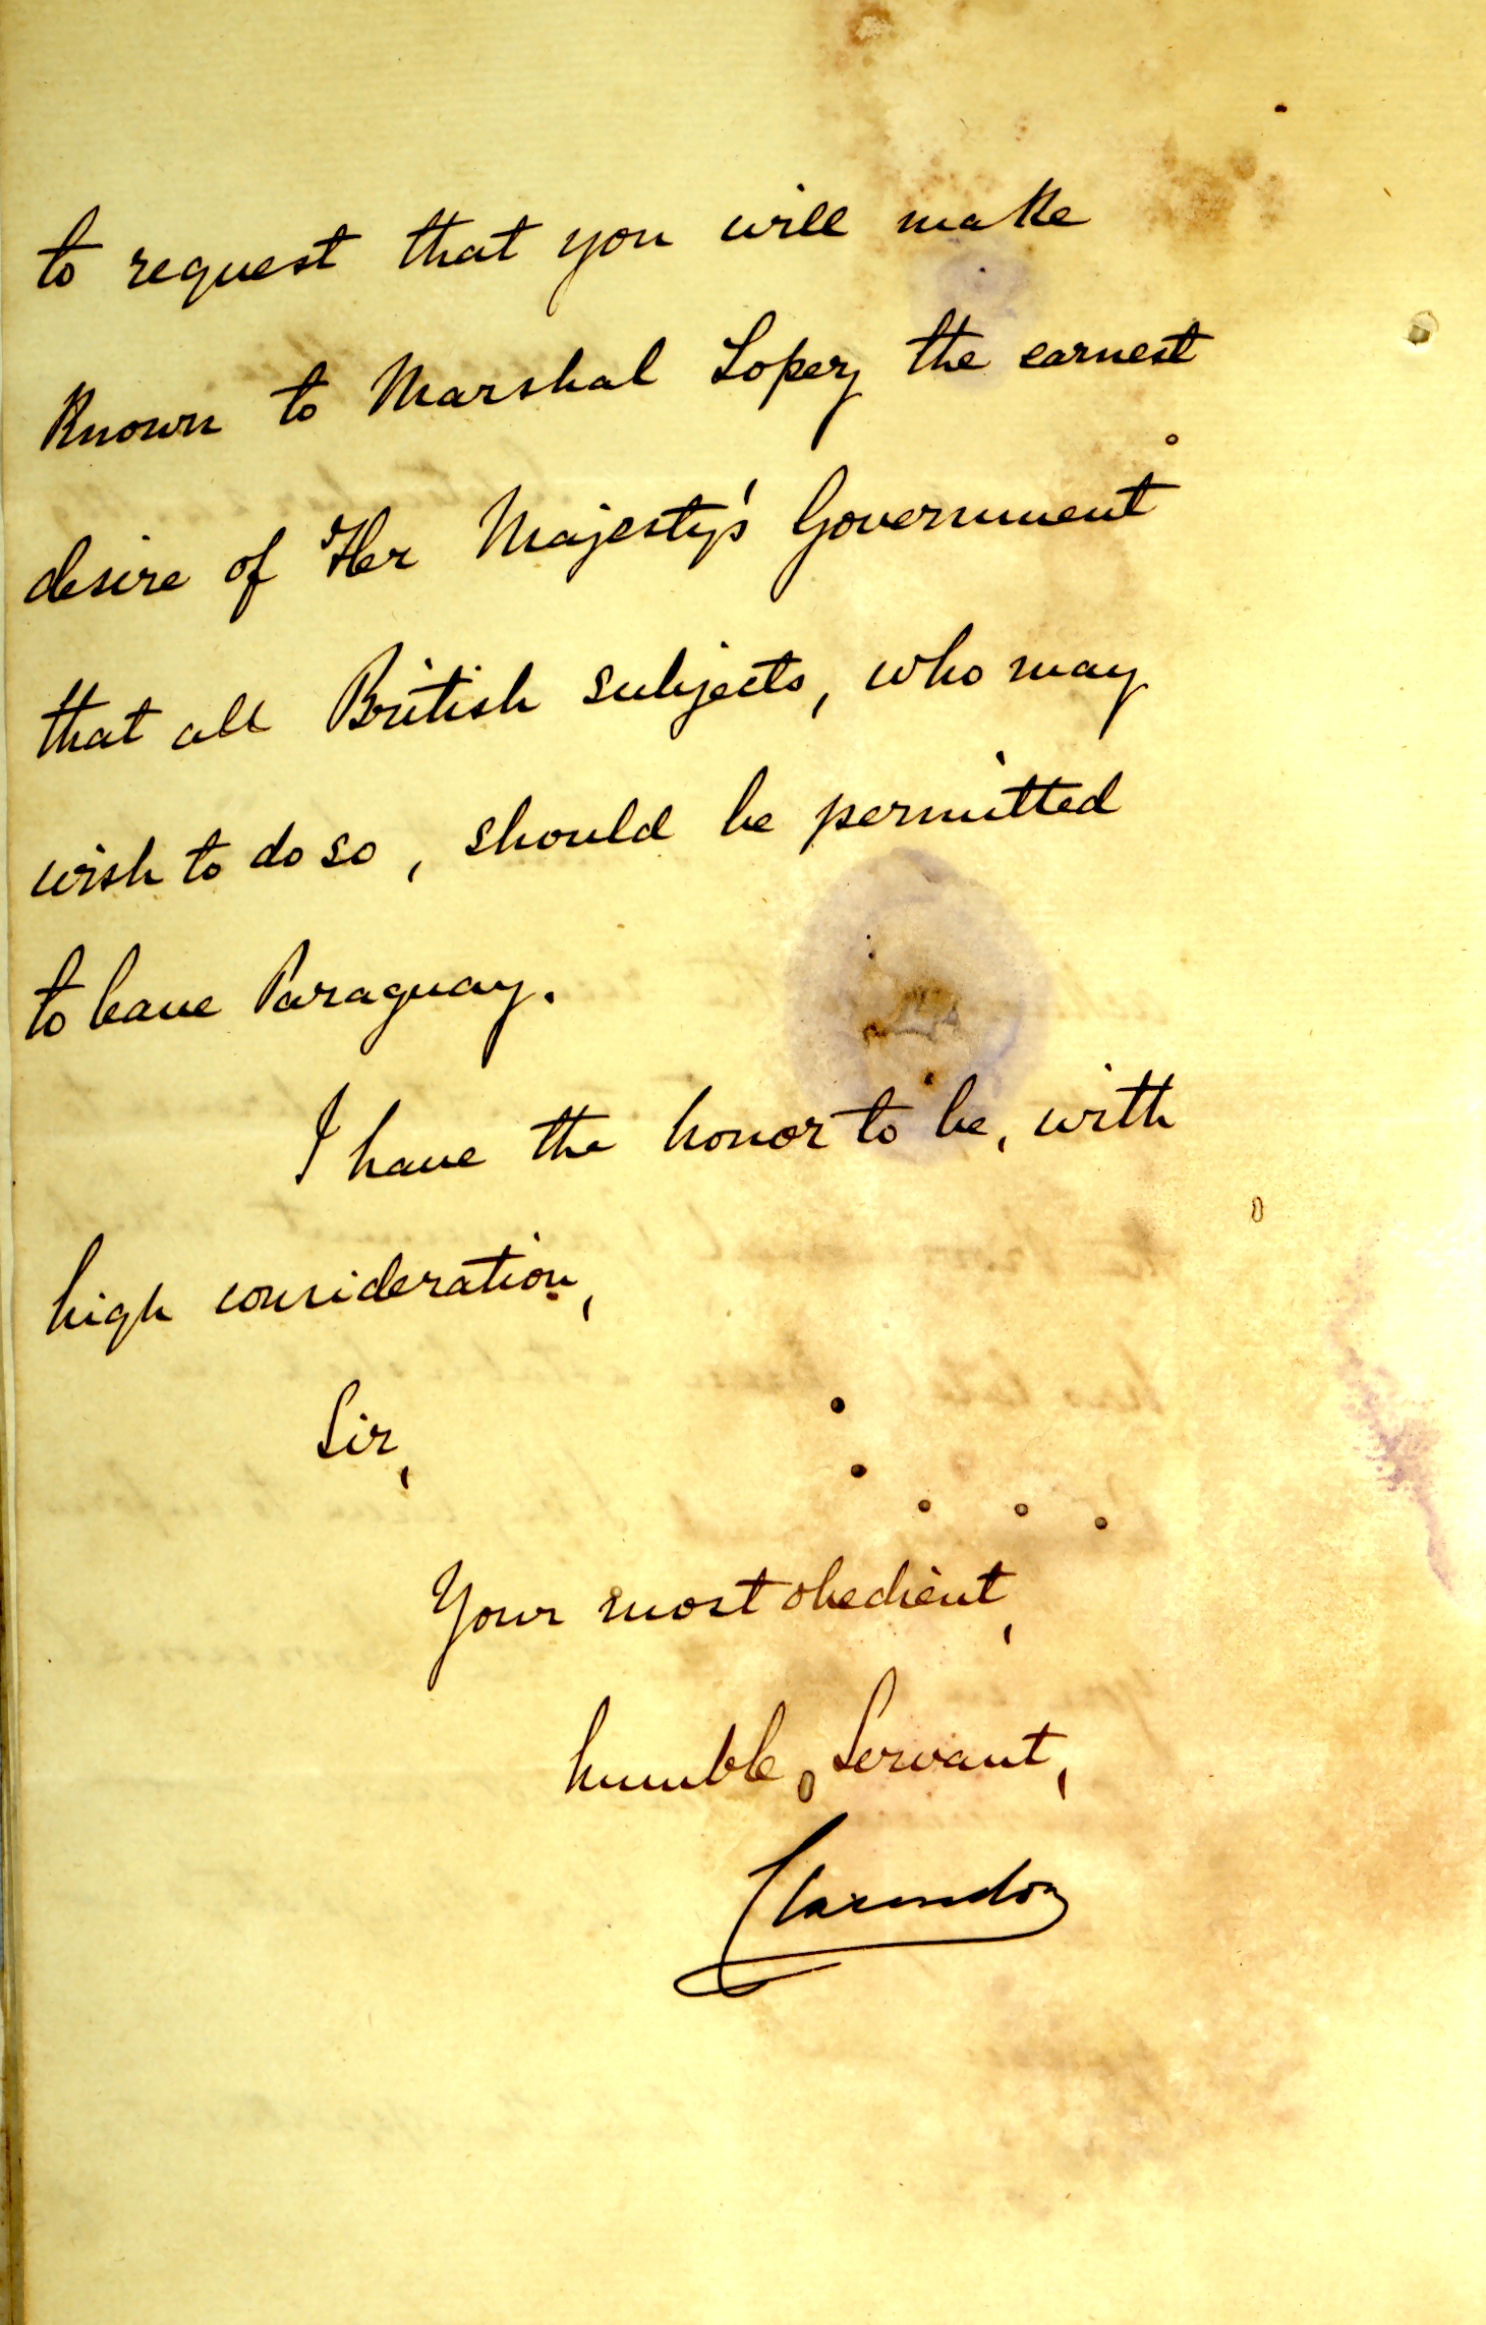 to request that you will make
Known to Marshal Lopez the earnest
desire of Her Majesty's Government
that all British subjects, who may
wish to do so, should be permitted
to leave Paraguay.
I have the honor to be, with
high consideration,
Sir,
Your most obedient,
humble Servant,
Clarendon